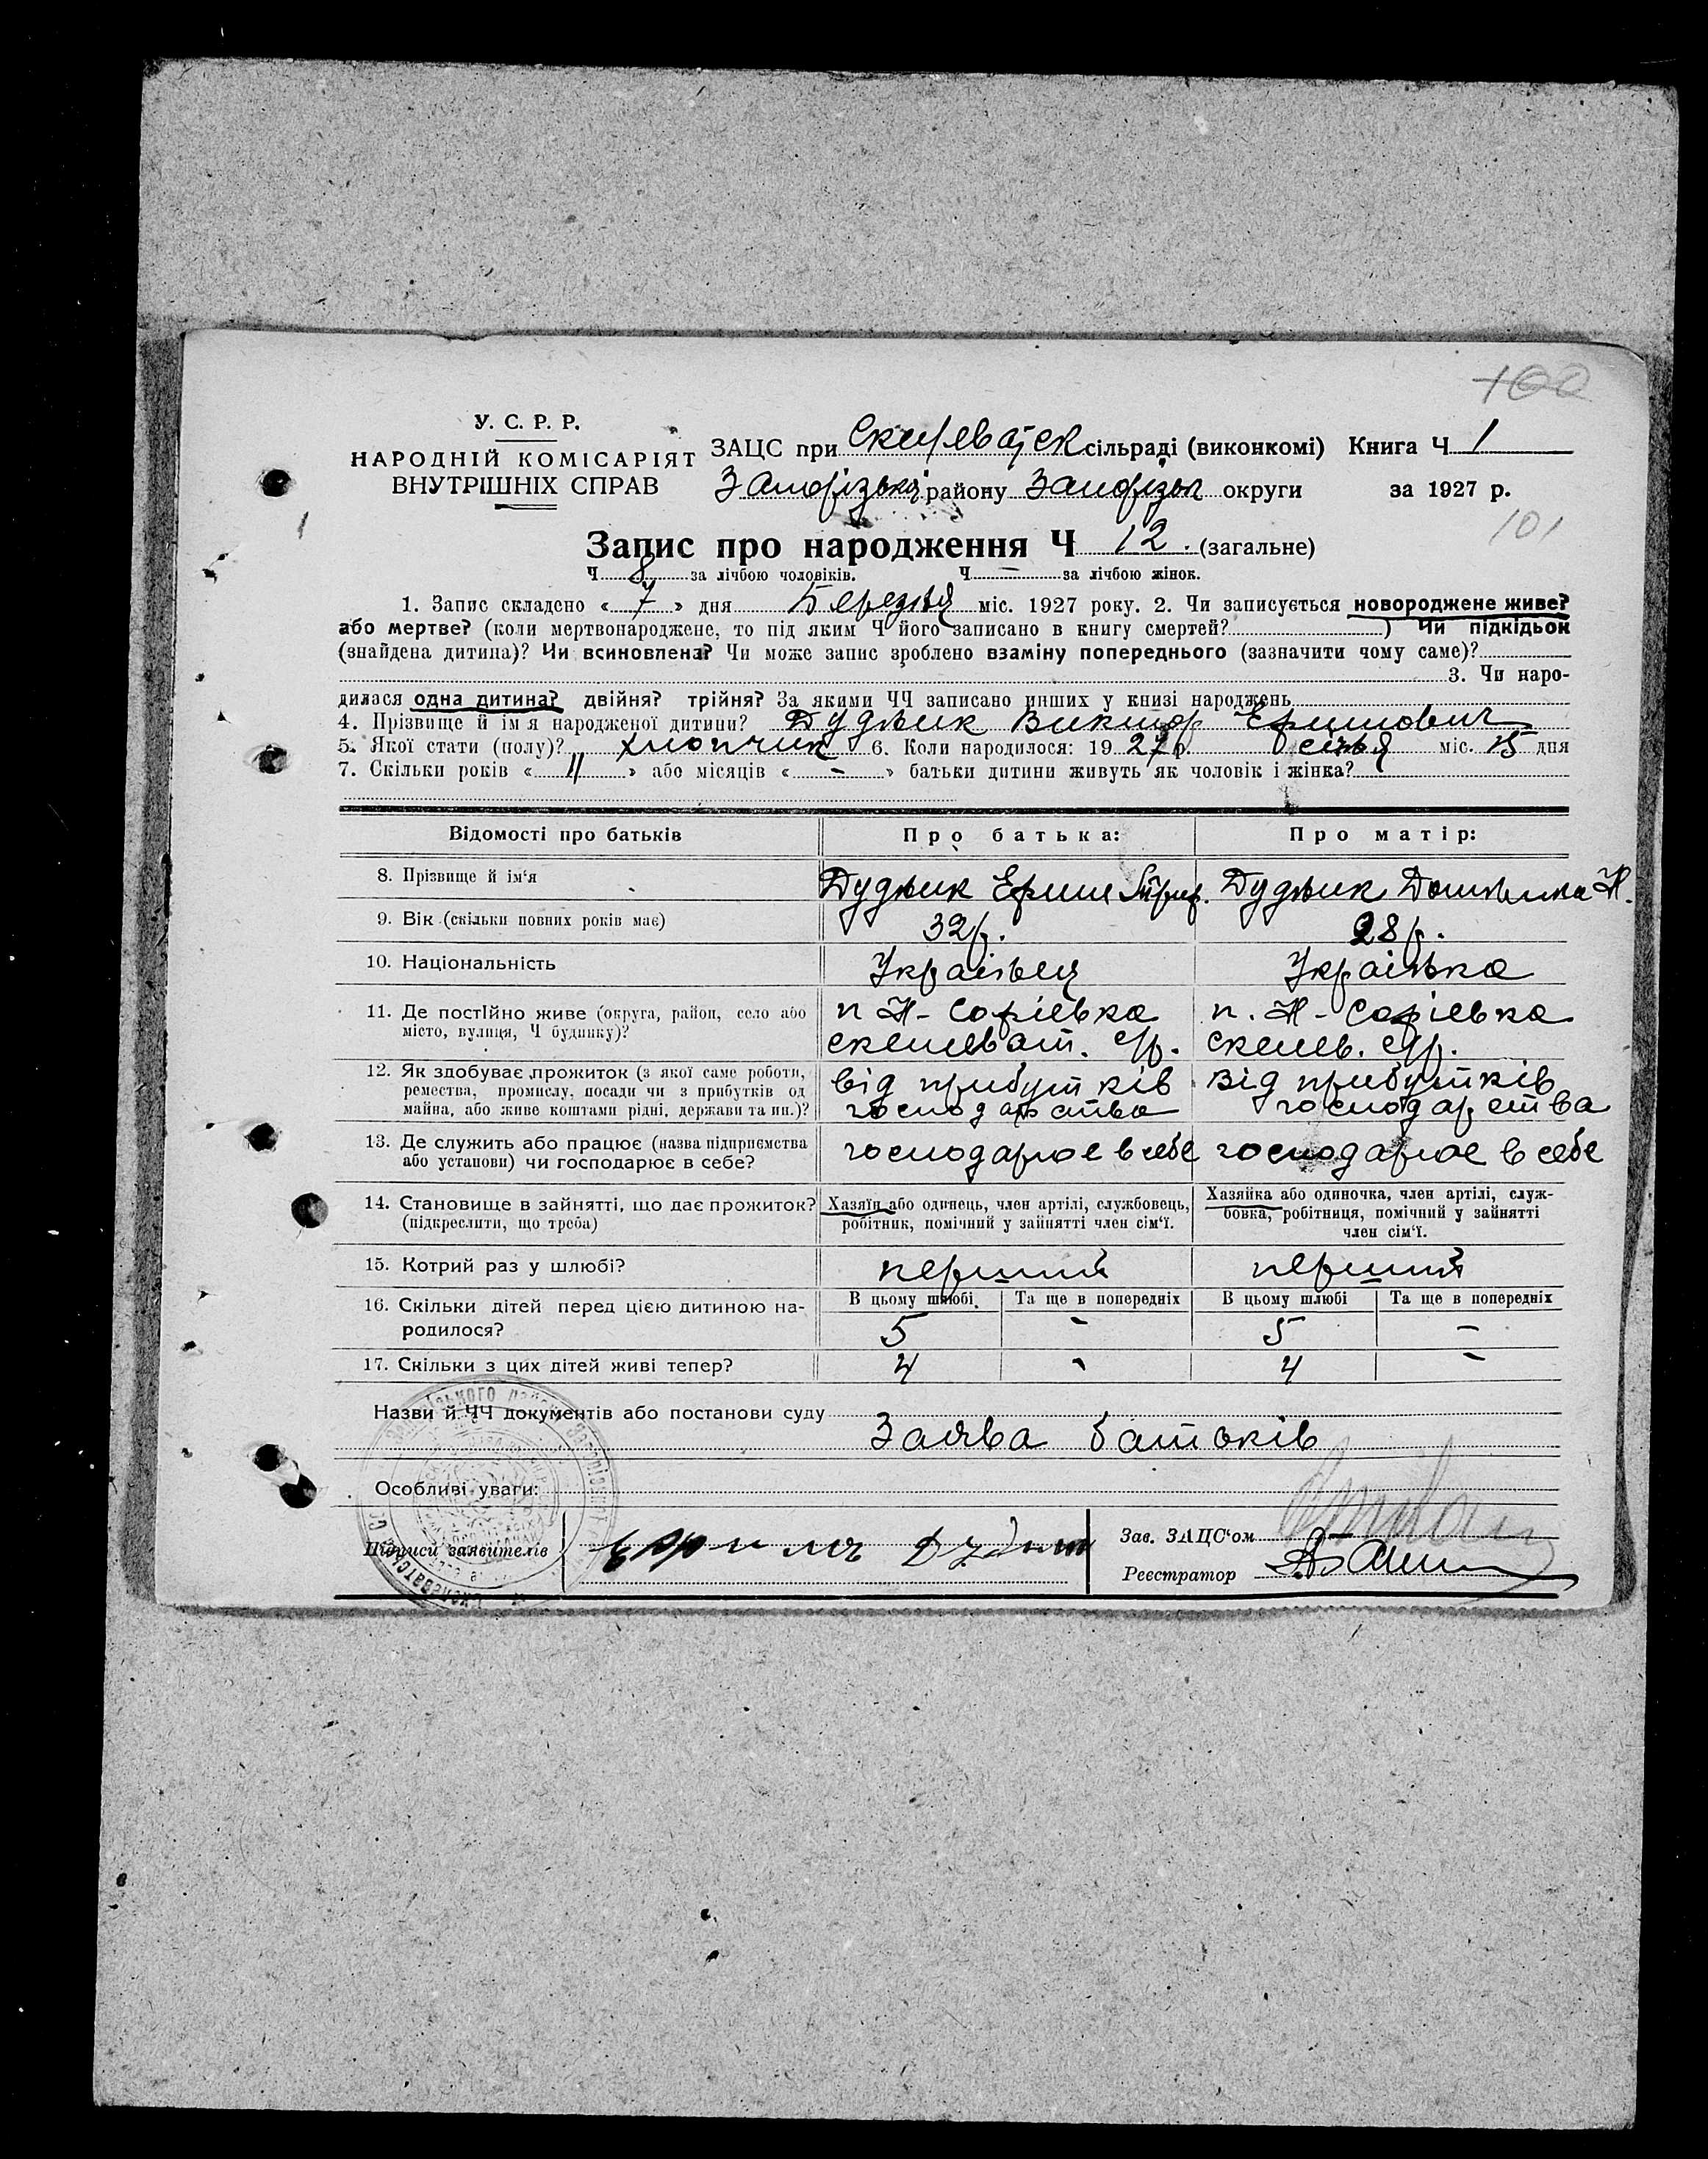 100
У. С. Р. Р.
НАРОДНІЙ КОМІСАРІЯТ
ВНУТРІШНІХ СПРАВ
ЗАЦС при Скелеватск сільраді (виконкомі) Книга Ч 1
Запорізьк району Запорізьк округи за 1927 р.
101
1
Запис про народження Ч 12. (загальне)
Ч 8 за лічбою чоловіків. Ч — за лічбою жінок.
1. Запис складено « 7 » дня Березня міс. 1927 року. 2. Чи записується новороджене живе?
або мертве? (коли мертвонароджене, то під яким Ч його записано в книгу смертей?) Чи підкідьок
(знайдена дитина)? Чи всиновлена? Чи може запис зроблено взаміну попереднього (зазначити чому саме)?
3. Чи наро-
дилася одна дитина? двійня? трійня? За якими ЧЧ записано инших у книзі народжень
4. Прізвище й ім'я народженої дитини? Дудник Виктор
5. Якої стати (полу)? хлопчик 6. Коли народилося: 1927 р. січня міс. 15 дня
7. Скільки років « 11 » або місяців « - » батьки дитини живуть як чоловік і жінка?
Відомості про батьків
Про батька:
Про матір:
8. Прізвище й ім'я
Дудник
Дудник
9. Вік (скільки повних років має)
32 р.
28 р.
10. Національність
Українець
Українка
11. Де постійно живе (округа, район, село або
місто, вулиця, Ч будинку)?
п Н- Софіевка
скелеват. с/р.
п. Н- Софіевка
скелев. с/р.
12. Як здобуває прожиток (з якої саме роботи,
ремества, промислу, посади чи з прибутків од
майна, або живе коштами рідні, держави та ин.)?
від прибутків
господарства
від прибутків
господарства
13. Де служить або працює (назва підприємства
або установи) чи господарює в себе?
господарює в себе
господарює в себе
14. Становище в зайнятті, що дає прожиток?
(підкреслити, що треба)
Хазяїн або одинець, член артілі, службовець,
робітник, помічний у зайнятті член сім'ї.
Хазяйка або одиночка, член артілі, служ-
бовка, робітниця, помічний у зайнятті
член сім'ї.
15. Котрий раз у шлюбі?
перший
перший
16. Скільки дітей перед цією дитиною на-
родилося?
В цьому шлюбі Та ще в попередніх
В цьому шлюбі Та ще в попередніх
5 -
5 -
17. Скільки з цих дітей живі тепер?
4 -
4 -
Назви й ЧЧ документів або постанови суду
Заява батьків
Особливі уваги:
Підписи заявителів
Зав. ЗАЦС'ом
Реєстратор